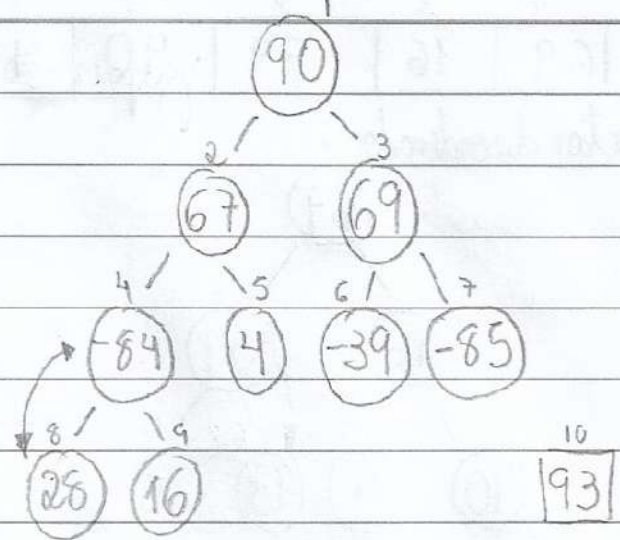 1
90
2 3
67 69
4 5 6 7
-84 4 -39 -85
8 9 10
28 16 93